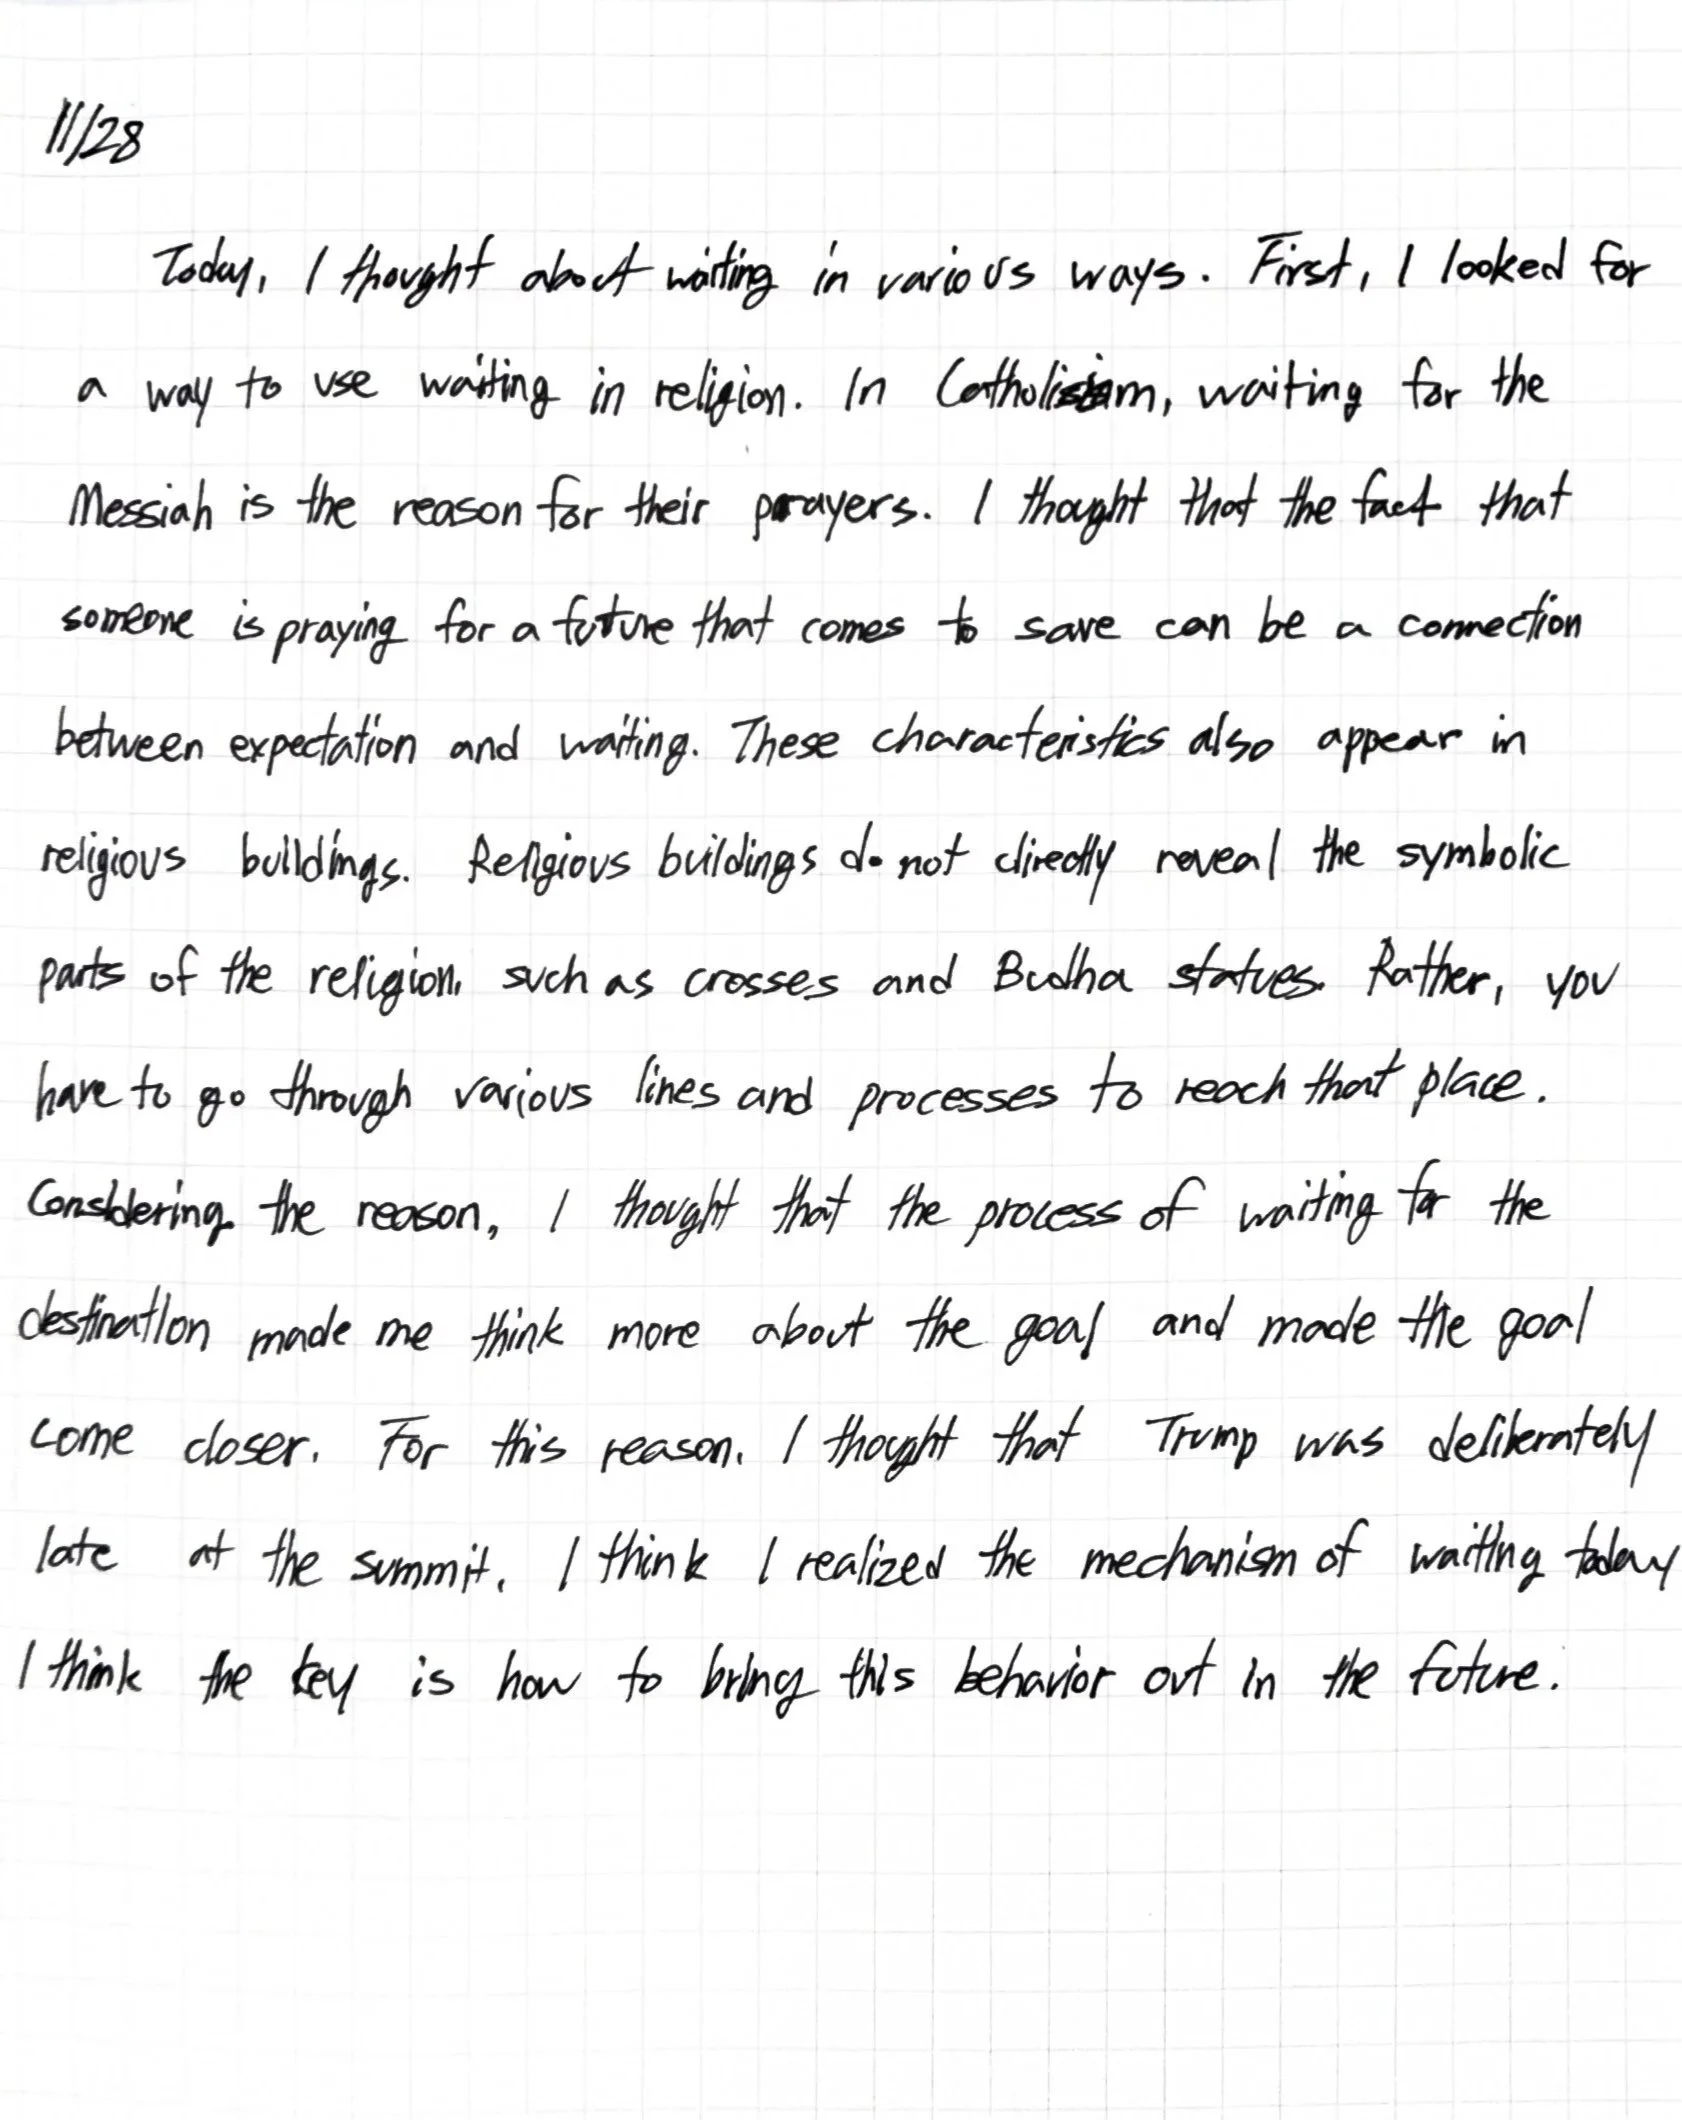 11/28
Today, I thought about waiting in various ways. First, I looked for
a way to use waiting in religion. In Catholisism, waiting for the
Messiah is the reason for their prayers. I thought that the fact that
someone is praying for a future that comes to save can be a connection
between expectation and waiting. These characteristics also appear in
religious buildings. Religious buildings do not directly reveal the symbolic
parts of the religion, such as crosses and Budha statues. Rather, you
have to go through various lines and processes to reach that place.
Considering the reason, I thought that the process of waiting for the
destination made me think more about the goal and made the goal
come closer. For this reason, I thought that Trump was deliberately
late at the summit. I think I realized the mechanism of waiting today
I think the key is how to bring this behavior out in the future.